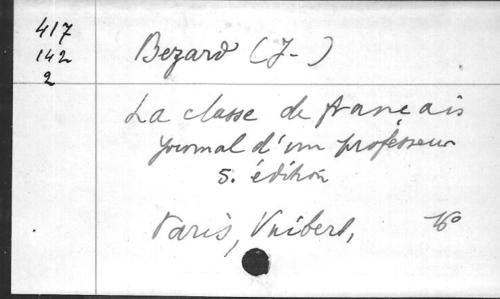 417
142
2
Bezard (J-)
La classe de français
journal d'un professeur
5. édition
Paris, Vuibert, 16°